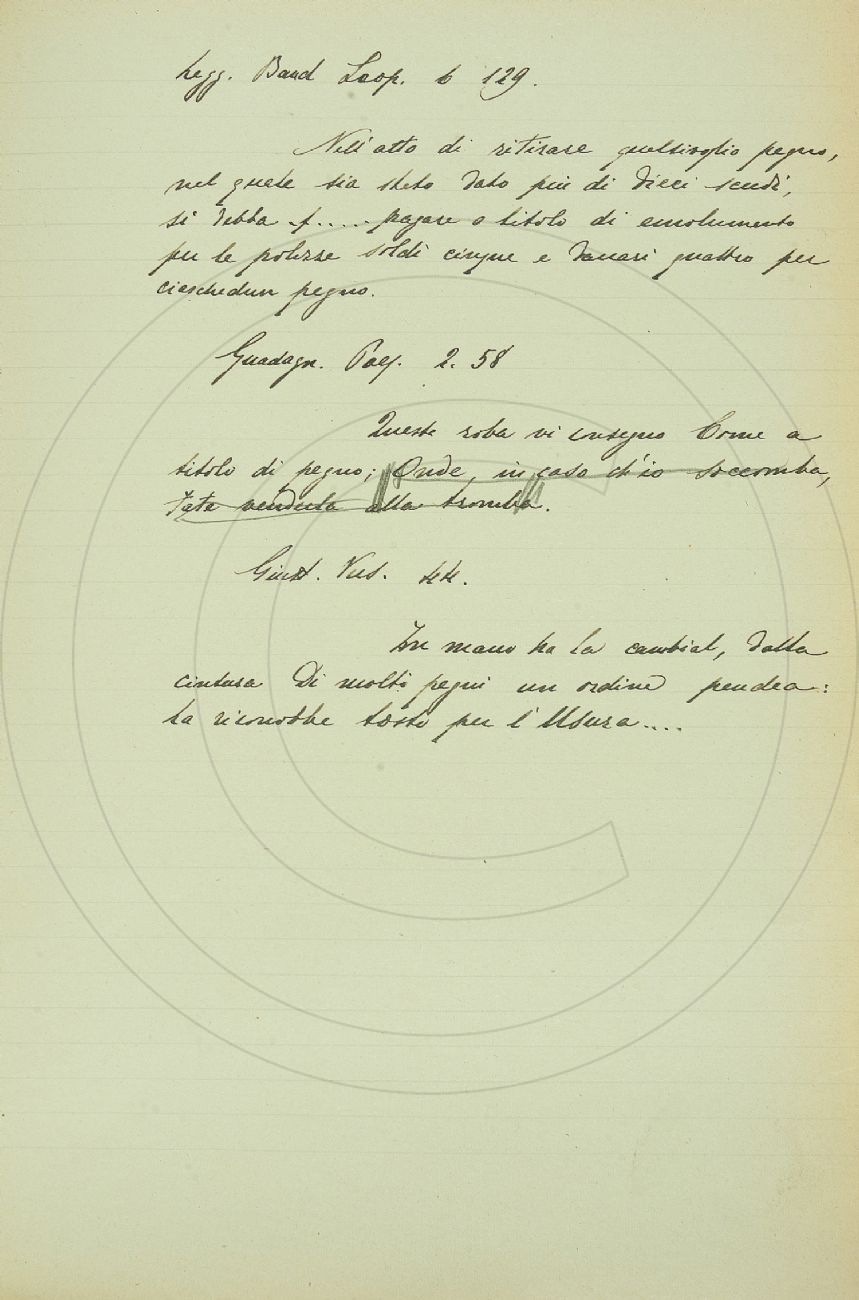 Legg. Band Leop. 6 129.
Nell'atto di ritirare qualsivoglia pegno,
nel quale sia stato dato più di dieci scudi,
si debba .f..... pagare a titolo di emolumento
per le polizze soldi cinque e danari quattro per
ciaschedun pegno.
Guadagn. Poes. 2. 58
Questa roba vi consegno Come a
titolo di pegno; Onde, in caso ch'io soccomba,
Fate vendita alla tromba.
Giust. Vers. 44.
In mano ha la cambial, dalla
cintura Di molti pegni un ordine pendea:
la riconobbe tosto per l'Usura....